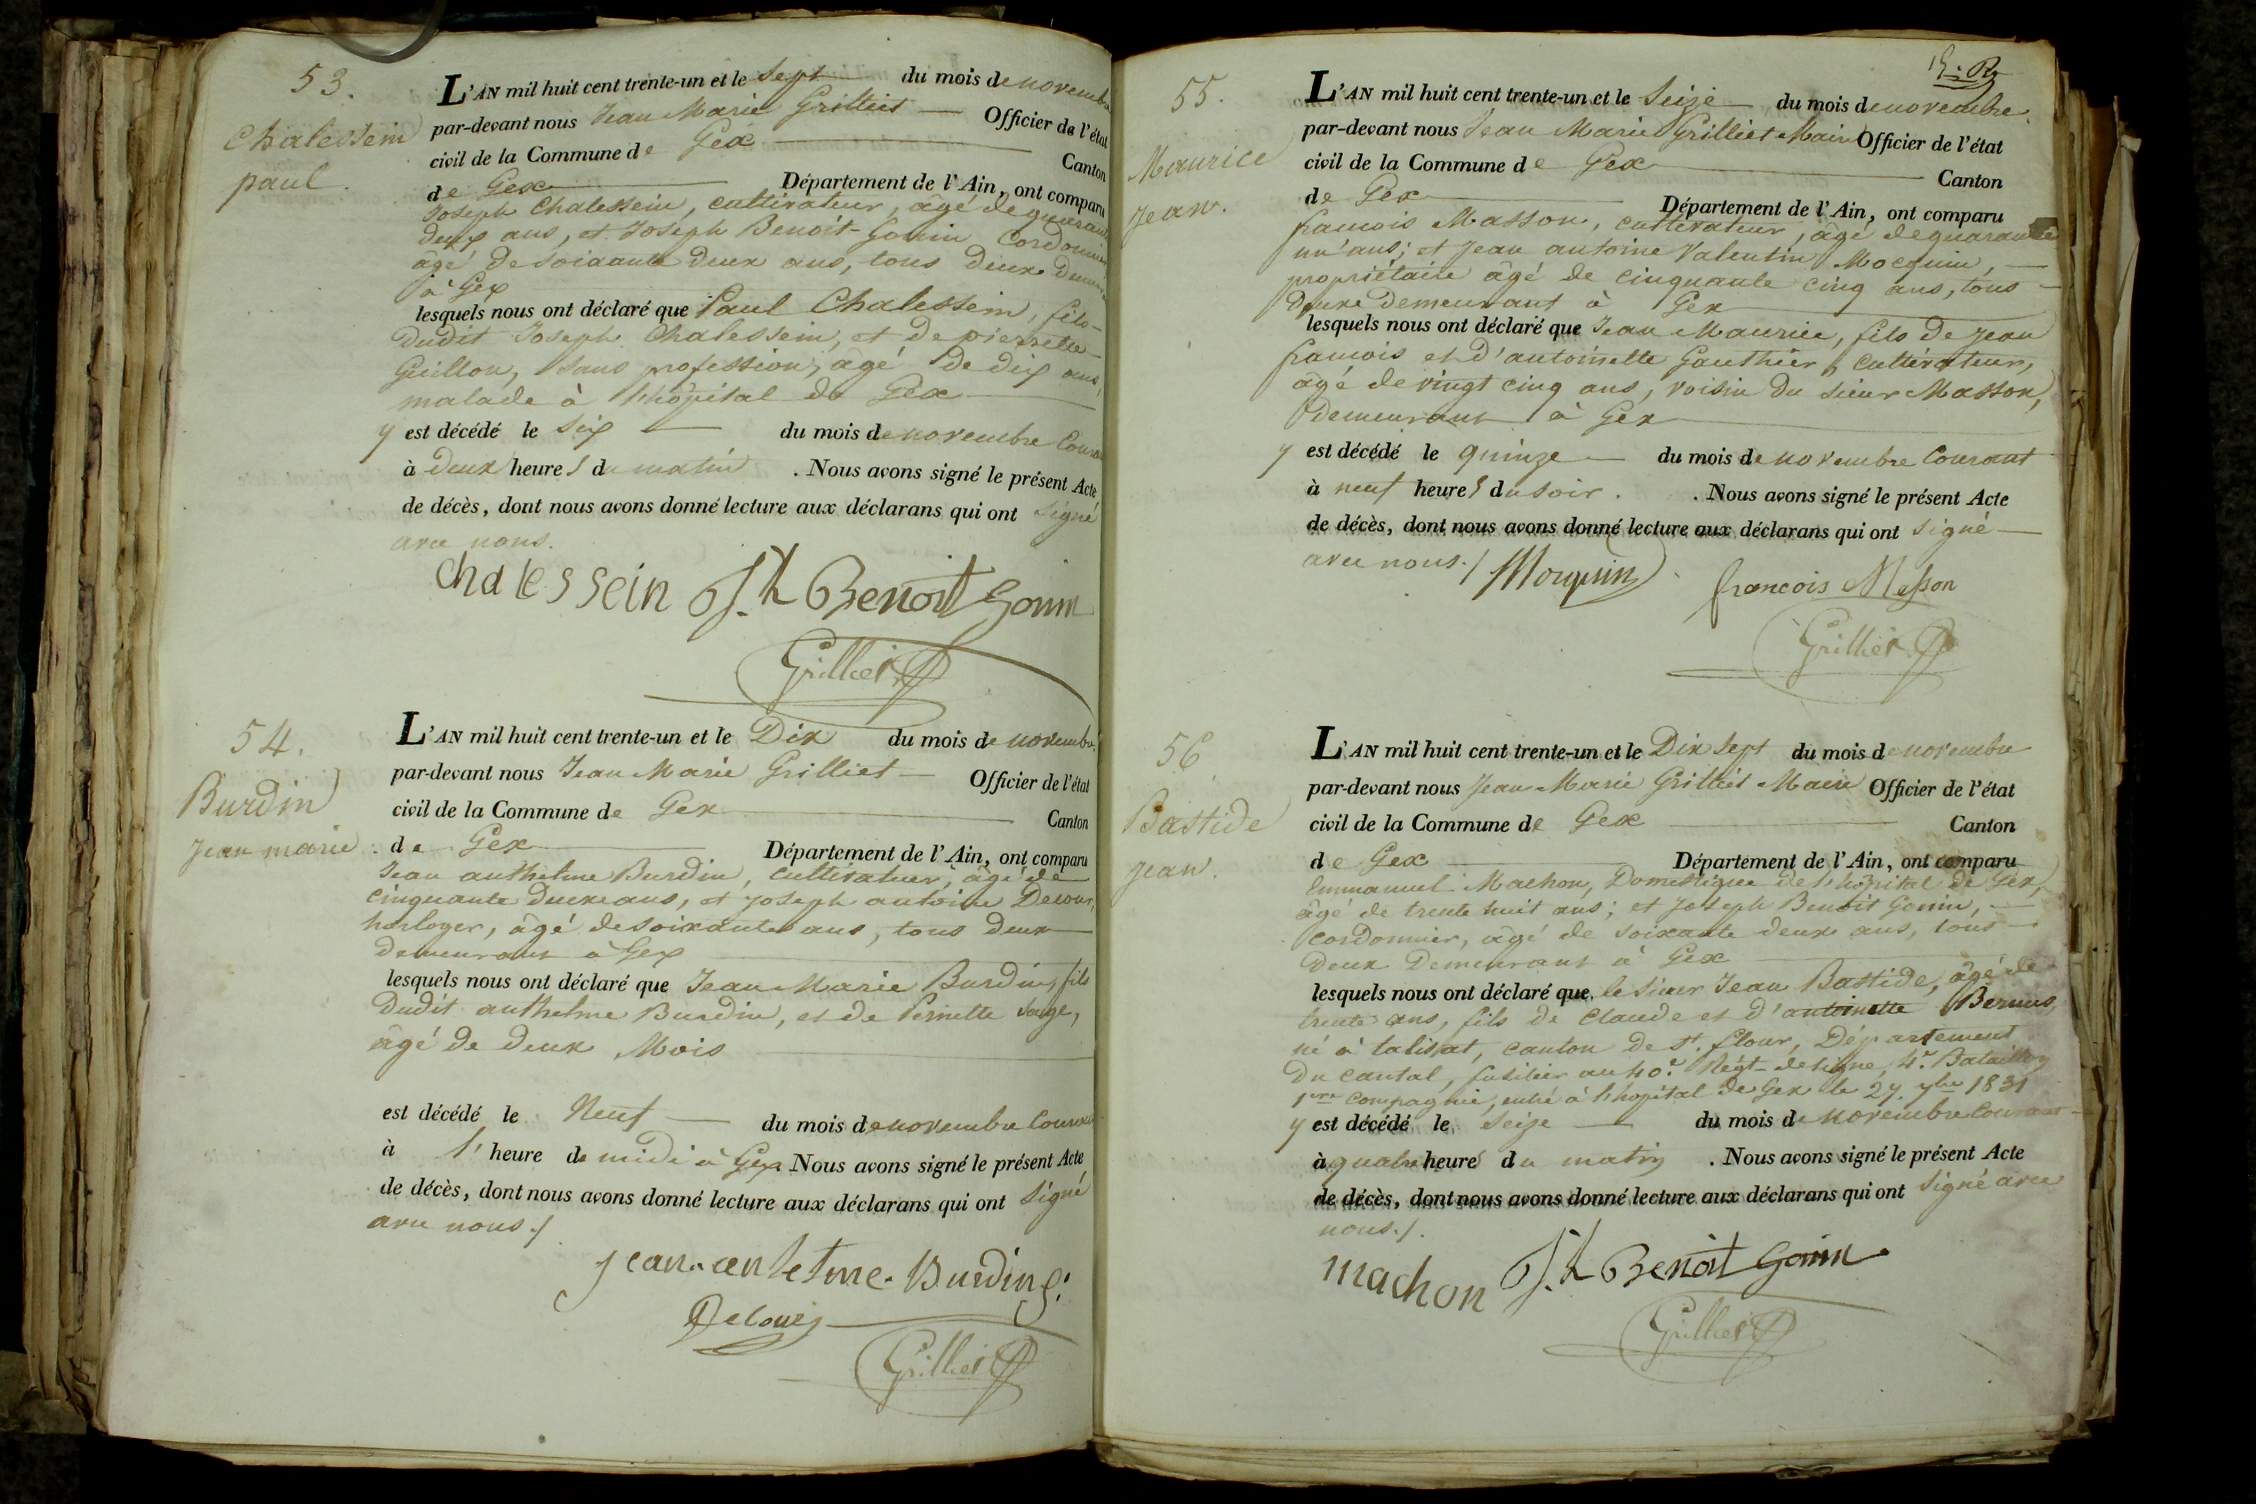 53.
Chalessein
paul.
L'AN mil huit cent trente-un et le Sept du mois de novembre
par-devant nous Jean Marie Grilliet Officier de l'état
civil de la Commune de Gex Canton
de Gex Département de l'Ain, ont comparu
Joseph Chalessein, cultivateur, âgé de quarante
deux ans, et Joseph Benoit-Gonin Cordonnier
âgé de soixante deux ans, tous deux
à Gex
lesquels nous ont déclaré que Paul Chalessein, fils
dudit Joseph Chalessein, et de pierrette
Guillon, sans profession, âgé de dix ans,
malade à l'hôpital de Gex
y est décédé le six du mois de novembre Courant
à deux heures du matin. Nous avons signé le présent Acte
de décès, dont nous avons donné lecture aux déclarans qui ont signé
avec nous.
chalessein Jh Benoit Gonin
Grilliet
54.
Burdin
Jean marie
L'AN mil huit cent trente-un et le Dix du mois de novembre
par-devant nous Jean Marie Grilliet Officier de l'état
civil de la Commune de Gex Canton
de Gex Département de l'Ain, ont comparu
Jean anthelme Burdin, cultivateur, âgé de
cinquante deux ans, et Joseph antoine
horloger, âgé de soixante ans, tous deux
demeurant à Gex
lesquels nous ont déclaré que Jean Marie Burdin, fils
Dudit anthelme Burdin, et de Pernette Sage,
âgé de deux Mois
est décédé le Neuf du mois de novembre Courant
à l'heure de midi à Gex. Nous avons signé le présent Acte
de décès, dont nous avons donné lecture aux déclarans qui ont signé
avec nous./.
jean. antelme. Burdin
Grilliet
55.
Maurice
Jean.
L'AN mil huit cent trente-un et le Seize du mois de novembre
par-devant nous Jean Marie Grilliet Maire Officier de l'état
civil de la Commune de Gex Canton
de Gex Département de l'Ain, ont comparu
francois Masson, cultivateur, âgé de quarante
un ans; et Jean antoine Valentin Mocquin,
propriétaire âgé de cinquante cinq ans, tous
deux Demeurant à Gex
lesquels nous ont déclaré que Jean Maurice, fils de Jean
francois et d'antoinette Gauthier, cultivateur,
âgé de vingt cinq ans, voisin du sieur Masson,
demeurant à Gex
y est décédé le quinze du mois de novembre Courant
à neuf heures du soir. . Nous avons signé le présent Acte
de décès, dont nous avons donné lecture aux déclarans qui ont signé
avec nous./ Moquin francois Masson
Grilliet
56
Bastide
Jean.
L'AN mil huit cent trente-un et le Dix Sept du mois de novembre
par-devant nous Jean Marie Grilliet Maire Officier de l'état
civil de la Commune de Gex Canton
de Gex Département de l'Ain, ont comparu
Emmanuel Machon, Domestique de l'hôpital de Gex,
âgé de trente huit ans; et Joseph Benoit Gonin,
Cordonnier, âgé de soixante deux ans, tous
deux Demeurant à Gex
lesquels nous ont déclaré que le Sieur Jean Bastide, âgé de
trente ans, fils de Claude et d'antoinette
né à talisat, canton de St. flour, Département
Du Cantal, fusilier au 40e. Régt. de ligne, 4e. Bataillon
1ere compagnie, entré à l'hopital de Gex le 27 7bre 1831
y est décédé le Seize du mois de novembre Courant
à quatre heures du matin . Nous avons signé le présent Acte
de décès, dont nous avons donné lecture aux déclarans qui ont signé avec
nous./.
machon Jh Benoit Gonin
Grilliet